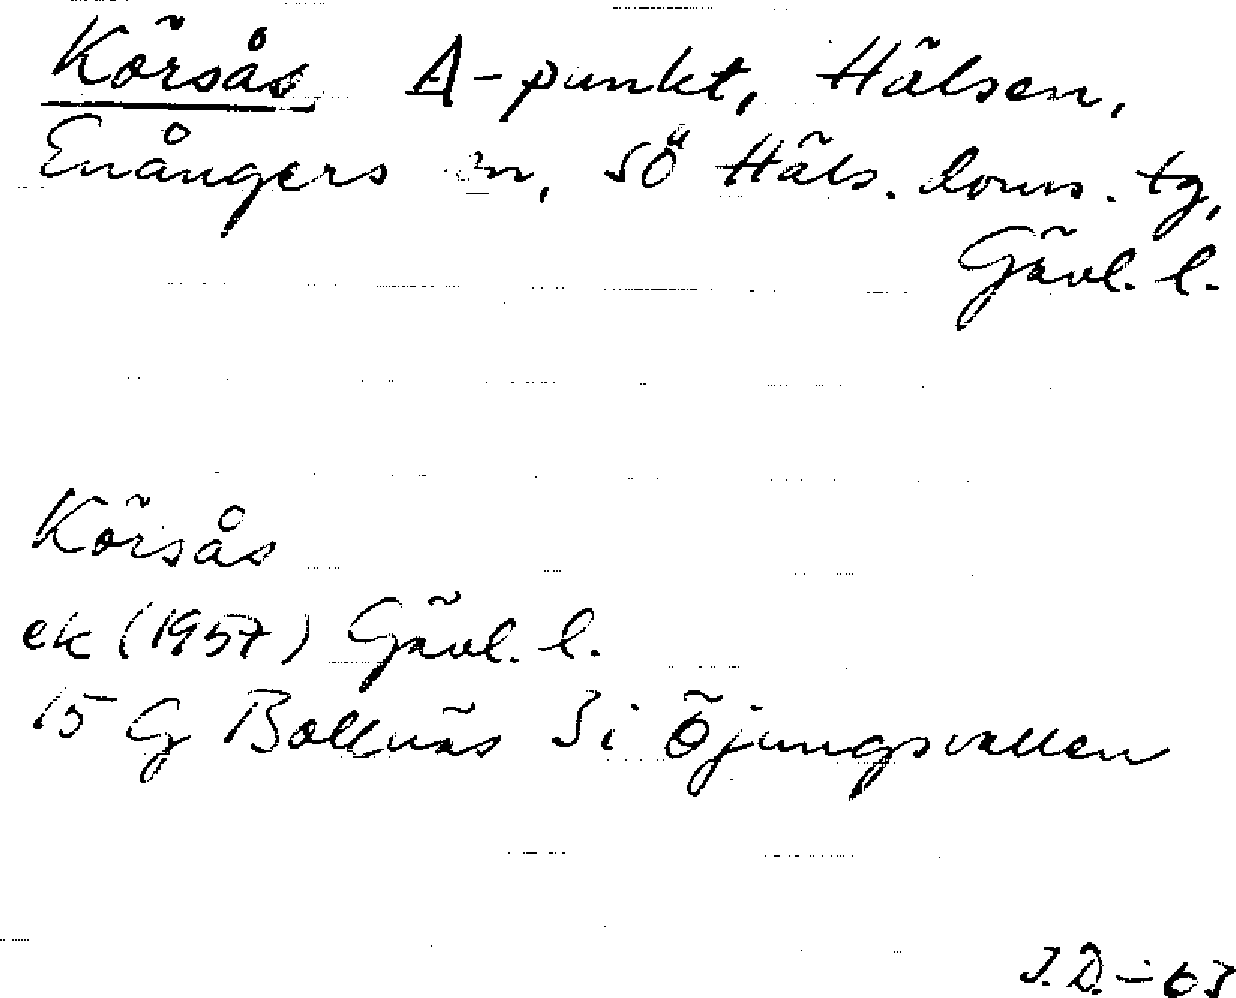 Körsås A-punkt, Hälsen,
Enångers sn, SÖ Häls. doms. tg,
Gävl. l.
Körsås
ek (1957) Gävl. l.
15 G Bollnäs 3 i Öjungsvallen
J.D. - 63